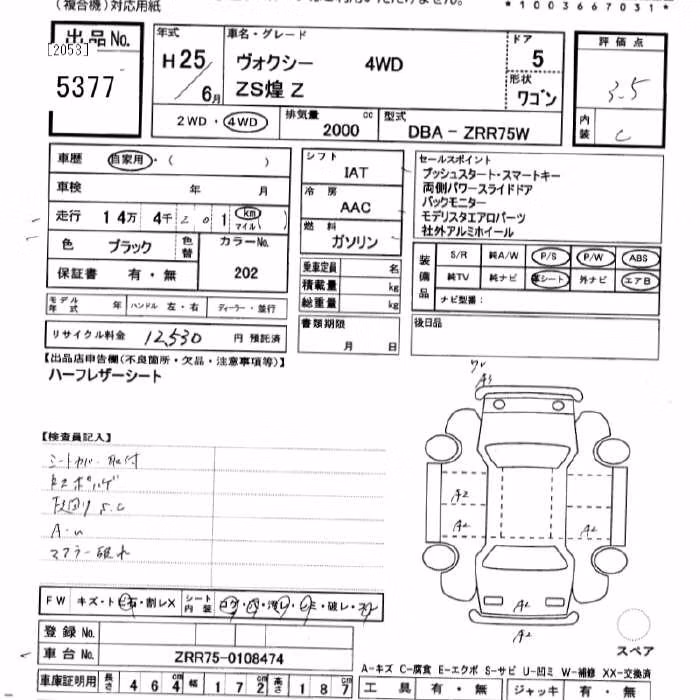 (複合機)対応用紙
*1003667031*
出品No.
[2053]
5377
年式
H25
6月
車名・グレード
ヴォクシー 4WD
ZS煌Z
ドア
5
形状
ワゴン
2WD・4WD
排気量
2000 cc
型式
DBA－ZRR75W
評価点
3.5
内装
C
車歴 自家用・( )
車検 年 月
走行 14万 4千 201 km マイル( )
色 ブラック 色替
カラーNo.
202
保証書 有・無
モデル年式 年 ハンドル 左・右 ディーラー・並行
リサイクル料金 12,530 円 預託済
シフト
IAT
冷房
AAC
燃料
ガソリン
乗車定員 名
積載量 kg
総重量 kg
書類期限
月 日
セールスポイント
プッシュスタート・スマートキー
両側パワースライドドア
バックモニター
モデリスタエアロパーツ
社外アルミホイール
装備品
S/R 純A/W P/S P/W ABS
純TV 純ナビ 革シート 外ナビ エアB
ナビ型番:
後日品
【出品店申告欄(不良箇所・欠品・注意事項等)】
ハーフレザーシート
【検査員記入】
シートカバー取付
下回りS.C
マフラー破れ
A2
A2
A2
A2
A2
FW キズ・トビ石・割レX
シート内装 コゲ・穴・汚レ・シミ・破レ・スレ
登録No.
車台No. ZRR75-0108474
車庫証明用 長さ 464cm 幅 172cm 高さ 187cm
スペア
A-キズ C-腐食 E-エクボ S-サビ U-凹ミ W-補修 XX-交換済
工具 有・無 ジャッキ 有・無